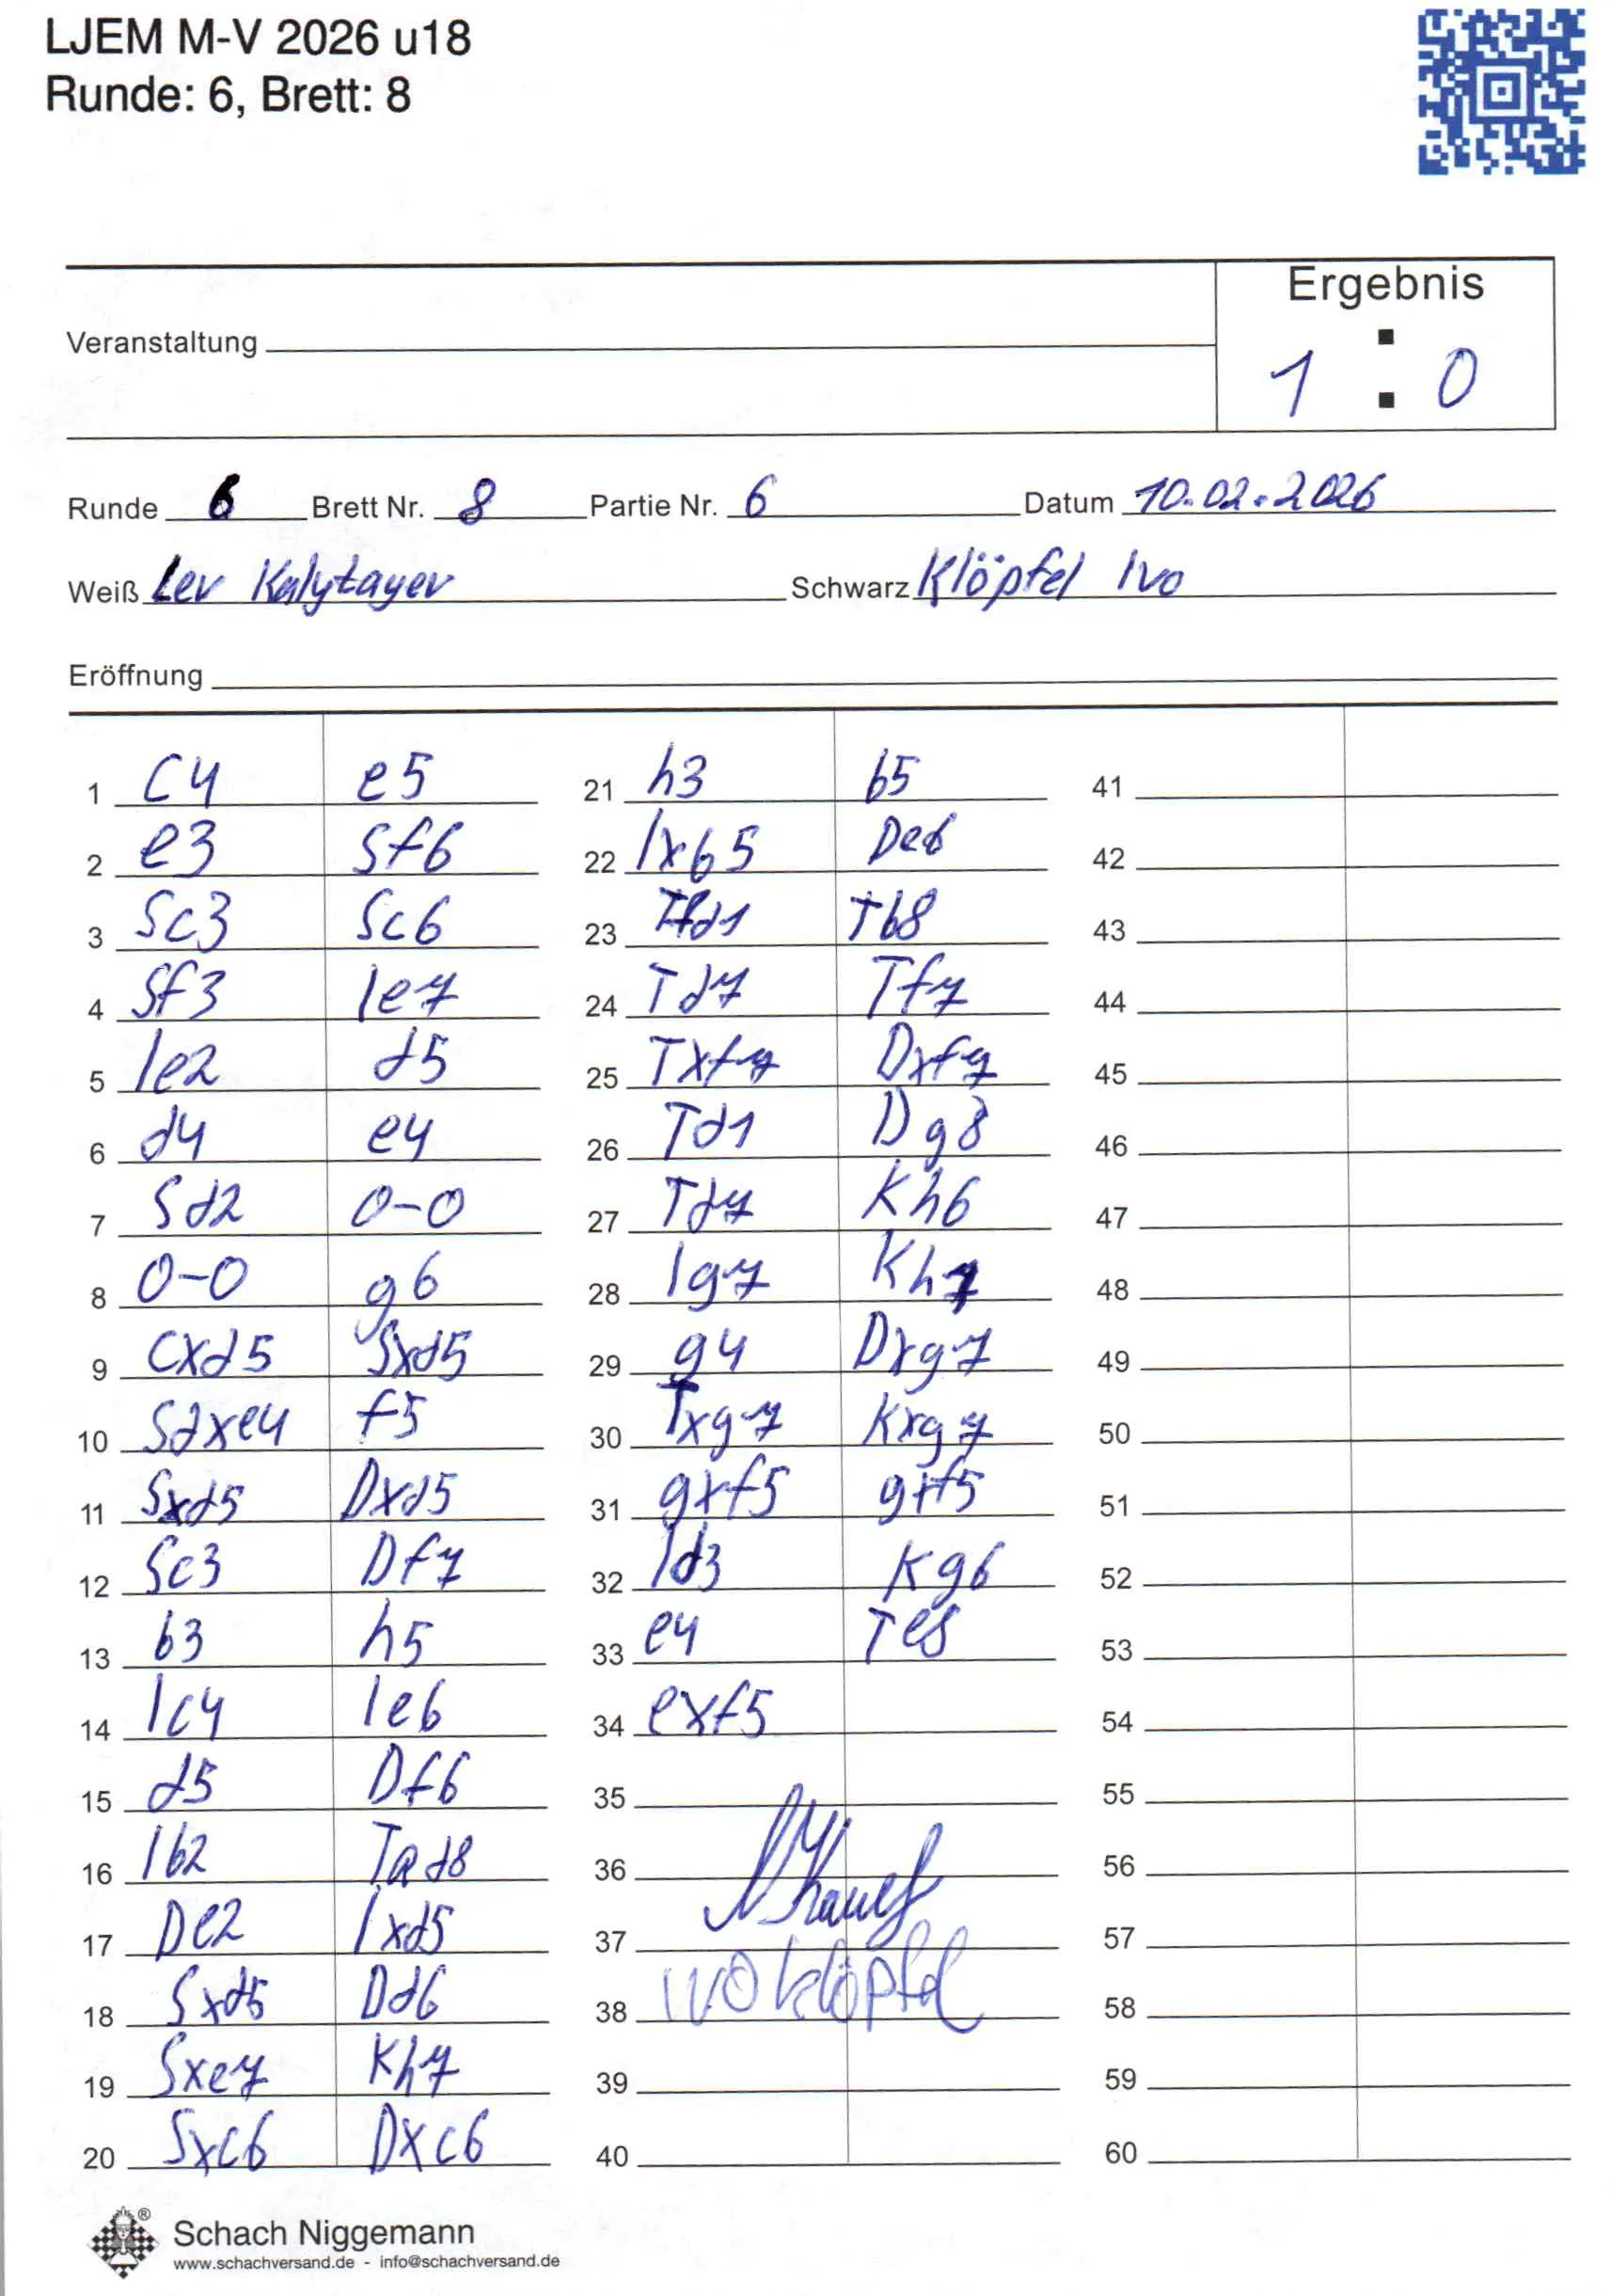 LJEM M-V 2026 u18
Runde: 6, Brett: 8
Ergebnis
Veranstaltung
1 : 0
Runde 6 Brett Nr. 8 Partie Nr. 6 Datum 10.02.2026
Weiß Lev Kalytayev Schwarz Klöpfel Ivo
Eröffnung
1 c4 e5
2 e3 Sf6
3 Sc3 Sc6
4 Sf3 le7
5 le2 d5
6 d4 e4
7 Sd2 0-0
8 0-0 g6
9 cxd5 Sxd5
10 Sdxe4 f5
11 Sxd5 Dxd5
12 Sc3 Df7
13 b3 h5
14 lc4 le6
15 d5 Df6
16 lb2 Tad8
17 De2 lxd5
18 Sxd5 Dd6
19 Sxe7 Kh7
20 Sxc6 Dxc6
21 h3 b5
22 lxb5 De6
23 Tfd1 Tb8
24 Td7 Tf7
25 Txf7 Dxf7
26 Td1 Dg8
27 Td7 Kh6
28 lg7 Kh7
29 g4 Dxg7
30 Txg7 Kxg7
31 gxf5 gxf5
32 ld3 Kg6
33 e4 Te8
34 exf5
35
36
37
38 IVO Klöpfel
39
40
41
42
43
44
45
46
47
48
49
50
51
52
53
54
55
56
57
58
59
60
Schach Niggemann
www.schachversand.de - info@schachversand.de